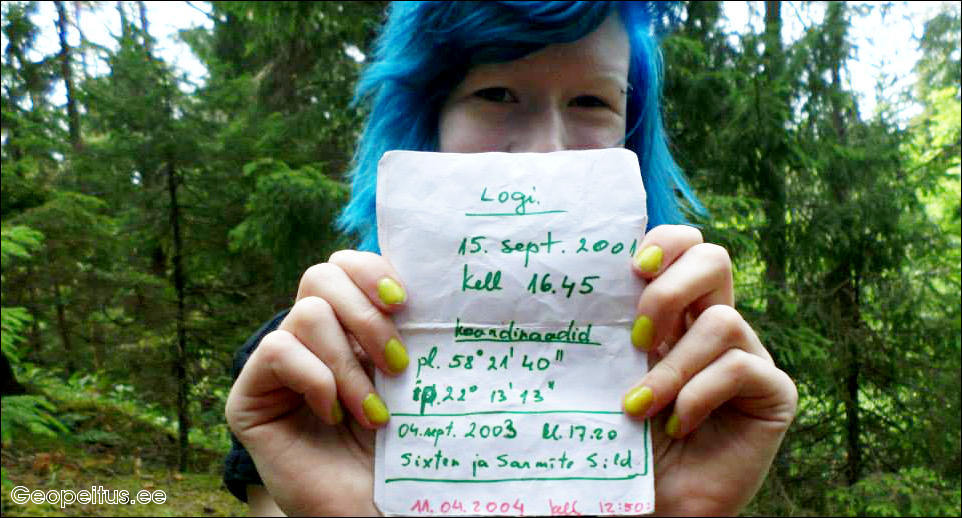 Logi.
15. sept. 2001
kell 16.45
koordinaadid
pl. 58° 21' 40"
ip. 22° 13' 13"
04. sept. 2003 kl. 17.20
Sixten ja Sarmite Sild
11.04.2004 kell 12:50
Geopeitus.ee